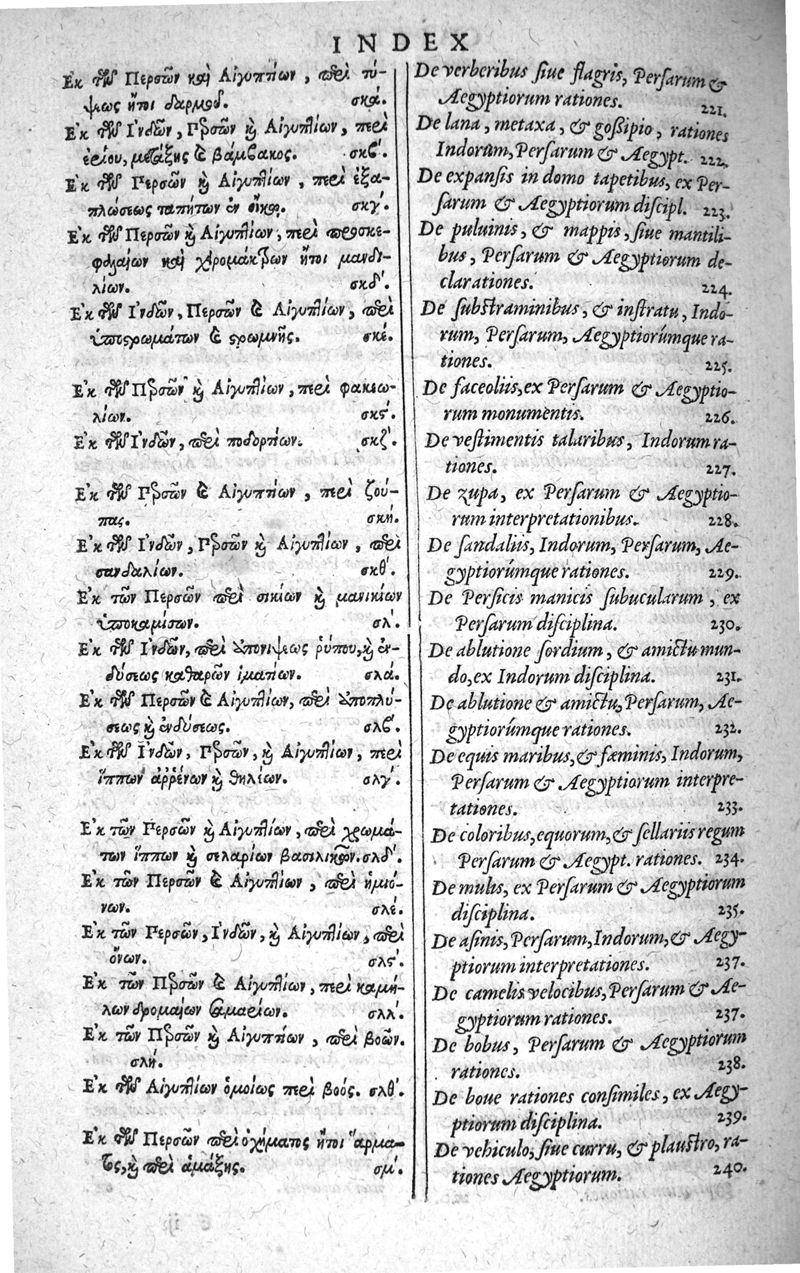 INDEX
Ἐκ τῶν Περσῶν καὶ Αἰγυπτίων, περὶ τύ-
ψεως ἤτοι δαρμοῦ. σκά.
Ἐκ τῶν Ἰνδῶν, Περσῶν καὶ Αἰγυπτίων, περὶ
ἐρίου, μετάξης καὶ βάμβακος. σκβ́.
Ἐκ τῶν Περσῶν καὶ Αἰγυπτίων, περὶ ἐξα-
πλώσεως ταπήτων ἐν οἴκῳ. σκγ́.
Ἐκ τῶν Περσῶν καὶ Αἰγυπτίων, περὶ προσκε-
φαλαίων καὶ χερομάκτρων ἤτοι μανδι-
λίων. σκδ́.
Ἐκ τῶν Ἰνδῶν, Περσῶν καὶ Αἰγυπτίων, περὶ
ὑποστρωμάτων καὶ στρωμνῆς. σκέ.
Ἐκ τῶν Περσῶν καὶ Αἰγυπτίων, περὶ φακιω-
λίων. σκϛ́.
Ἐκ τῶν Ἰνδῶν, περὶ ποδορτίων. σκζ́.
Ἐκ τῶν Περσῶν καὶ Αἰγυπτίων, περὶ ζού-
πας. σκή.
Ἐκ τῶν Ἰνδῶν, Περσῶν καὶ Αἰγυπτίων, περὶ
σανδαλίων. σκθ́.
Ἐκ τῶν Περσῶν περὶ σικίων καὶ μανικίων
ὑποκαμίσων. σλ́.
Ἐκ τῶν Ἰνδῶν, περὶ ἀπονίψεως ῥύπου, καὶ ἐν-
δύσεως καθαρῶν ἱματίων. σλά.
Ἐκ τῶν Περσῶν καὶ Αἰγυπτίων, περὶ ἀποπλύ-
σεως καὶ ἐνδύσεως. σλβ́.
Ἐκ τῶν Ἰνδῶν, Περσῶν, καὶ Αἰγυπτίων, περὶ
ἵππων ἀῤῥένων καὶ θηλίων. σλγ́.
Ἐκ τῶν Περσῶν καὶ Αἰγυπτίων, περὶ χρωμά-
των ἵππων καὶ σελαρίων βασιλικῶν. σλδ́.
Ἐκ τῶν Περσῶν καὶ Αἰγυπτίων, περὶ ἡμιό-
νων. σλέ.
Ἐκ τῶν Περσῶν, Ἰνδῶν, καὶ Αἰγυπτίων, περὶ
ὄνων. σλϛ́.
Ἐκ τῶν Περσῶν καὶ Αἰγυπτίων, περὶ καμή-
λων δρομαίων σαμαρίων. σλλ́.
Ἐκ τῶν Περσῶν καὶ Αἰγυπτίων, περὶ βοῶν.
σλή.
Ἐκ τῶν Αἰγυπτίων ὁμοίως περὶ βοός. σλθ́.
Ἐκ τῶν Περσῶν περὶ ὀχήματος ἤτοι ἅρμα-
τος, καὶ περὶ ἁμάξης. σμ́.
De verberibus siue flagris, Persarum &
Aegyptiorum rationes. 221.
De lana, metaxa, & gossipio, rationes
Indorum, Persarum & Aegypt. 222.
De expansis in domo tapetibus, ex Per-
sarum & Aegyptiorum discipl. 223.
De puluinis, & mappis, siue mantili-
bus, Persarum & Aegyptiorum de-
clarationes. 224.
De substraminibus, & instratu, Indo-
rum, Persarum, Aegyptiorúmque ra-
tiones. 225.
De faceoliis, ex Persarum & Aegyptio-
rum monumentis. 226.
De vestimentis talaribus, Indorum ra-
tiones. 227.
De zupa, ex Persarum & Aegyptio-
rum interpretationibus. 228.
De sandaliis, Indorum, Persarum, Ae-
gyptiorúmque rationes. 229.
De Persicis manicis subucularum, ex
Persarum disciplina. 230.
De ablutione sordium, & amictu mun-
do, ex Indorum disciplina. 231.
De ablutione & amictu, Persarum, Ae-
gyptiorúmque rationes. 232.
De equis maribus, & fæminis, Indorum,
Persarum & Aegyptiorum interpre-
tationes. 233.
De coloribus, equorum, & sellariis regum
Persarum & Aegypt. rationes. 234.
De mulis, ex Persarum & Aegyptiorum
disciplina. 235.
De asinis, Persarum, Indorum, & Aegy-
ptiorum interpretationes. 237.
De camelis velocibus, Persarum & Ae-
gyptiorum rationes. 237.
De bobus, Persarum & Aegyptiorum
rationes. 238.
De boue rationes consimiles, ex Aegy-
ptiorum disciplina. 239.
De vehiculo, siue curru, & plaustro, ra-
tiones Aegyptiorum. 240.